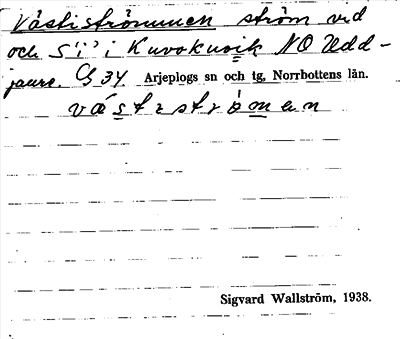 Västiströmmen ström vid
och S "i" i Kuvokuvik NO Udd-
jaure. G 34. Arjeplogs sn och tg, Norrbottens län.
västiströmen
Sigvard Wallström, 1938.